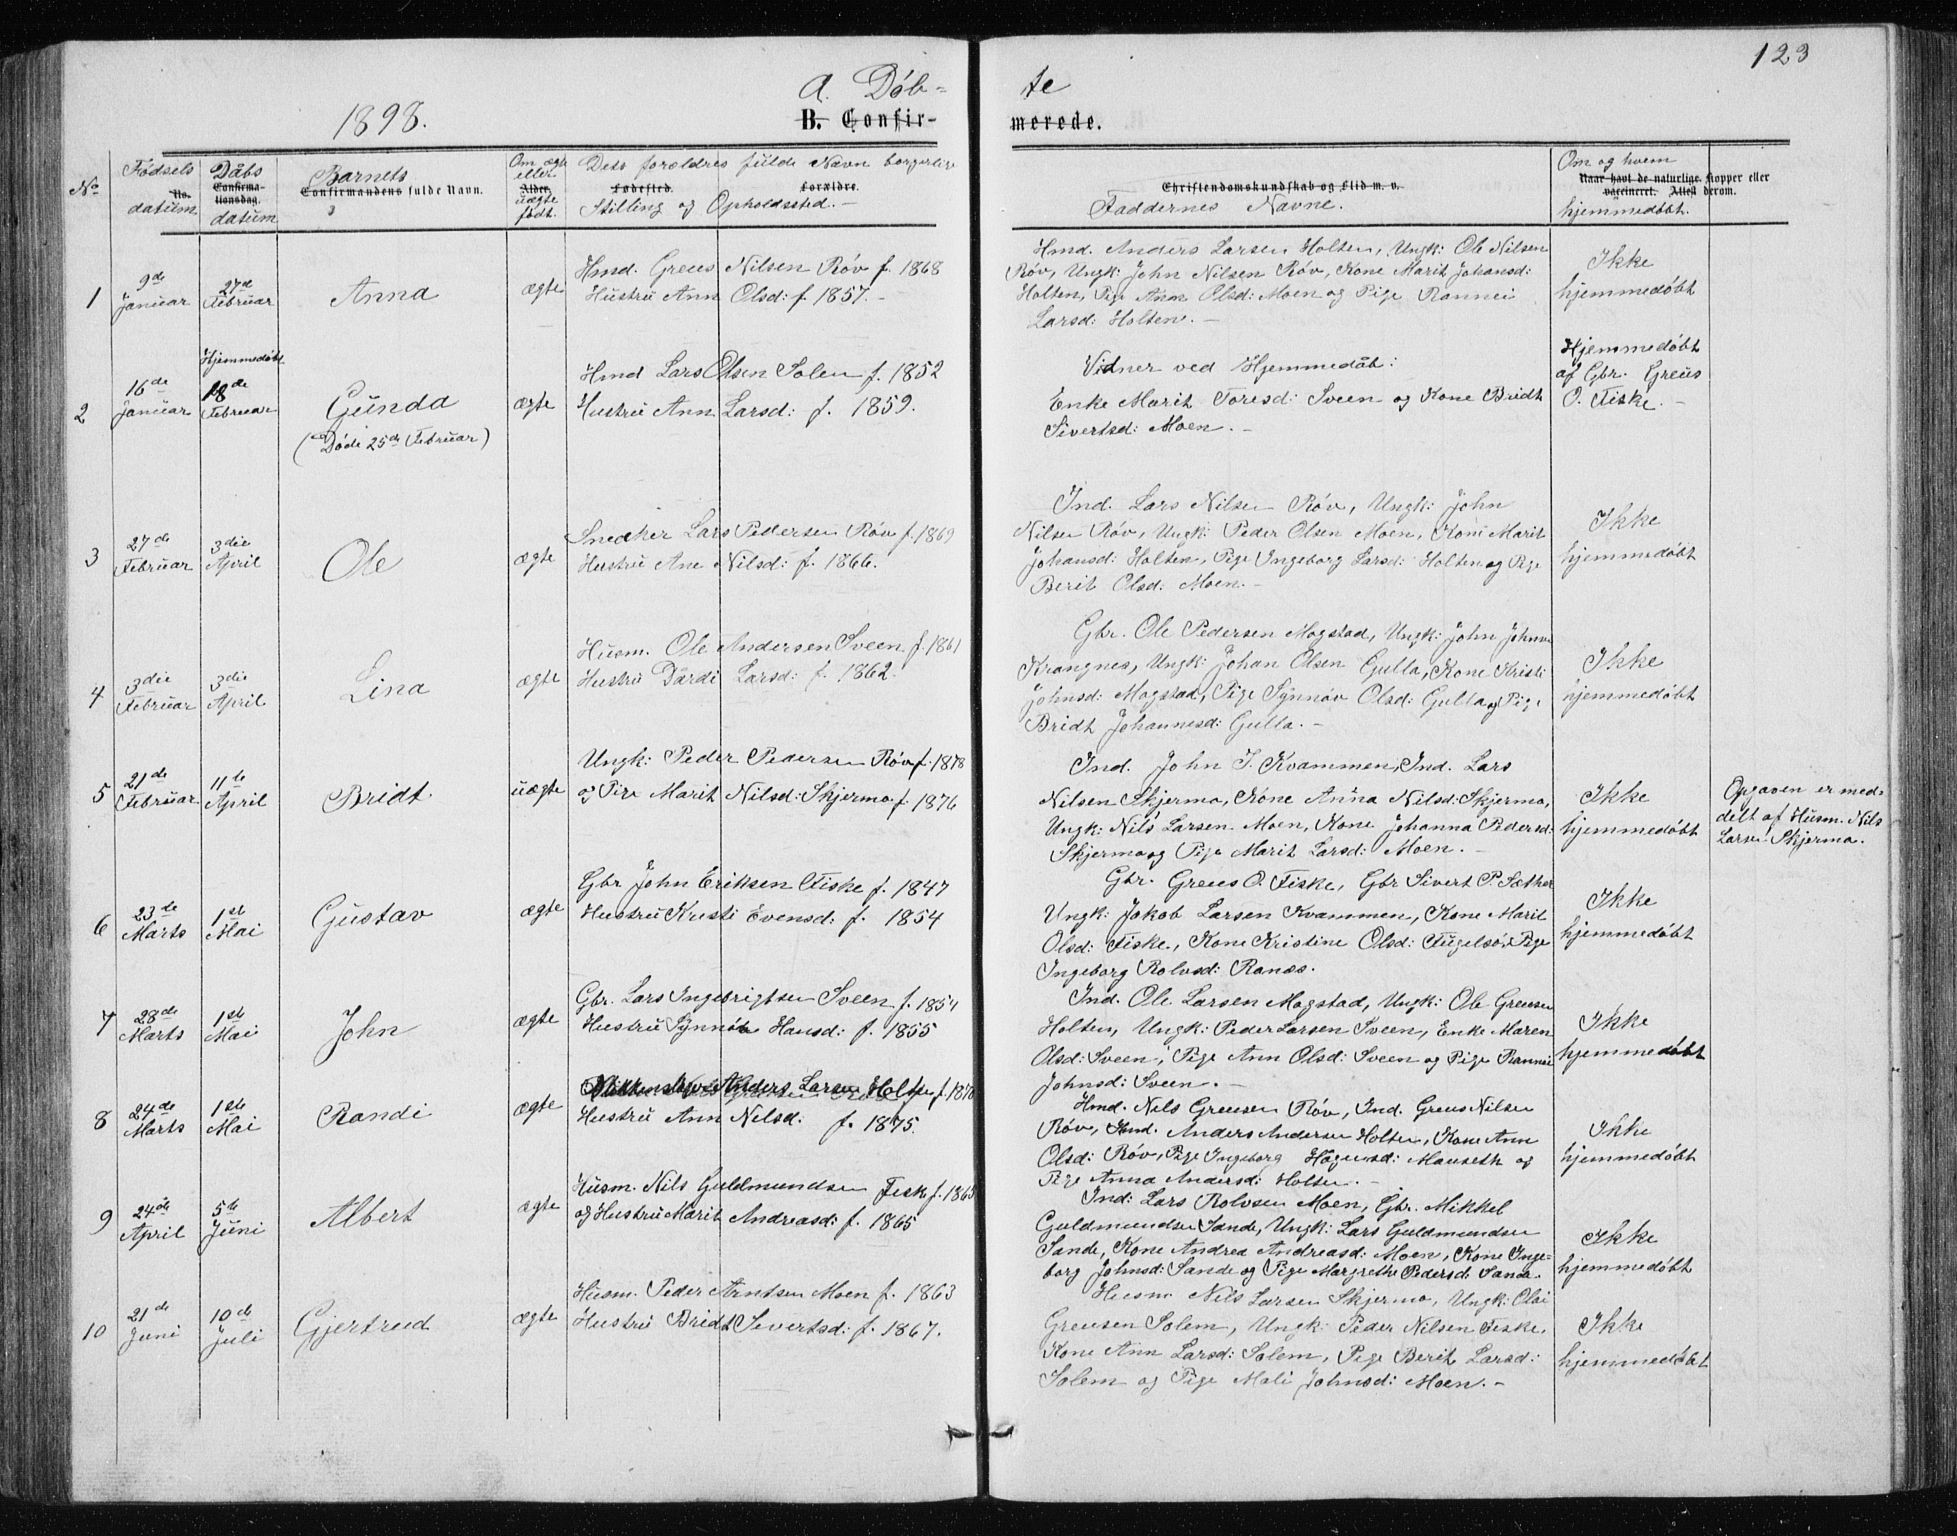 123
1898.
A. Döb- te
B. Confir- merede.
No
Fødsels No. datum
Dåbs Confirmationsdag. datum
Barnets Confirmandens fulde Navn.
Om ægte eller Alder. uægte født.
Dets forældres fulde Navn borgerlige
Fødested. Forældre.
Stilling og Opholdssted. -
Christendomskundskab og Flid m. v.
Faddernes Navne.
Om og hvem
Naar havt de naturlige Kopper eller vaccineret. Attest derom.
hjemmedøbt.
1
9de Januar
27de Februar
Anna
ægte
Hmd. Greus Nilsen Röv f. 1868
Hustru Ann Olsd: f. 1857. -
Hmd. Anders Larsen Holten, Ungk: Ole Nilsen
Röv, Ungk: John Nilsen Röv, Kone Marit Johansd:
Holten, Pige Ann Olsd: Moen og Pige Rannei
Larsd: Holten. -
Ikke
hjemmedøbt
2
16de Januar
Hjemmedøbt 18de Februar
Gunda
(Døde 25de Februar)
ægte
Hmd Lars Olsen Solem f. 1852
Hustru Ann Larsd: f. 1859.
Vidner ved Hjemmedåb:
Enke Marit Toresd: Sveen og Kone Bridt
Sivertsd: Moen. -
Hjemmedøbt
af Gbr. Greus
O. Fiske. -
3
27de Februar
3die April
Ole
ægte
Snedker Lars Pedersen Röv f. 1869
Hustru Ane Nilsd: f. 1866.
Ind. Lars Nilsen Röv, Ungk: John
Nilsen Röv, Ungk: Peder Olsen Moen, Kone Marit
Johansd: Holten, Pige Ingeborg Larsd: Holten og Pige
Berit Olsd: Moen. -
Ikke
hjemmedøbt
4
3die Februar
3die April
Lina
ægte
Husm. Ole Andersen Sveen f. 1861
Hustru Dårdi Larsd: f. 1862.
Gbr. Ole Pedersen Mogstad, Ungk: John Johnsen
Krangnes, Ungk: Johan Olsen Gulla, Kone Kristi
Johnsd: Mogstad, Pige Synnøv Olsd: Gulla og Pige
Bridt Johannesd: Gulla. -
Ikke
hjemmedøbt
5
21de Februar
11te April
Bridt.
uægte
Ungk: Peder Pedersen Röv f. 1878
og Pige Marit Nilsd: Skjermo f. 1876
Ind. John J. Kvammen, Ind. Lars
Nilsen Skjermo, Kone Anna Nilsd: Skjermo,
Ungk: Nils Larsen Moen, Kone Johanna Pedersd:
Skjermo og Pige Marit Larsd: Moen. -
Ikke
hjemmedøbt
Opgaven er med-
delt af Husm. Nils
Larsen Skjermo.
6
23de Marts
1ste Mai
Gustav
ægte
Gbr John Eriksen Fiske f. 1847
Hustru Kristi Evensd: f. 1854
Gbr. Greus O. Fiske, Gbr Sivert P. Sæther
Ungk: Jakob Larsen Kvammen, Kone Marit
Olsd: Fiske, Kone Kristine Olsd: Fugelsö, Pige
Ingeborg Rolvsd: Ranæs.
Ikke
hjemmedøbt
7
28de Marts
1ste Mai
John
ægte
Gbr. Lars Ingebrigtsen Sveen f. 1854
Hustru Synnöv Hansd: f. 1855
Ind. Ole Larsen Mogstad, Ungk: Ole Greusen
Holten, Ungk: Peder Larsen Sveen, Enke Maren
Olsd: Sveen, Pige Ann Olsd: Sveen og Pige Rannei
Johnsd: Sveen. -
Ikke
hjemmedøbt
8
24de Marts
1ste Mai
Randi
ægte
Anders Larsen Holten f. 1870
Hustru Ann Nilsd. f. 1875.
Hmd. Nils Greusen Röv, Ind. Greus Nilsen
Röv, Hmd. Anders Andersen Holten, Kone Ann
Olsd: Röv, Pige Ingeborg Hagensd: Mauseth og
Pige Anna Andersd: Holten. -
Ikke
hjemmedøbt
9
24de April
5te Juni
Albert
ægte
Husm. Nils Guldmundsen Fiske f. 1865
og Hustru Marit Andreasd: f. 1865
Ind: Lars Rolvsen Moen, Gbr. Mikkel
Guldmundsen Sande, Ungk: Lars Guldmundsen
Sande, Kone Andrea Andreasd: Moen, Kone Inge-
borg Johnsd: Sande og Pige Margrethe Pedersd: Sande.
Ikke
hjemmedøbt
10
21de Juni
10de Juli
Gjertrud
ægte
Husm. Peder Arntsen Moen f. 1863
Hustru Bridt Sivertsd: f. 1867.
Husm Nils Larsen Skjermo, Ungk: Olai
Greusen Solem, Ungk: Peder Nilsen Fiske,
Kone Ann Larsd: Solem, Pige Berit Larsd:
Solem og Pige Mali Johnsd: Moen. -
Ikke
hjemmedøbt